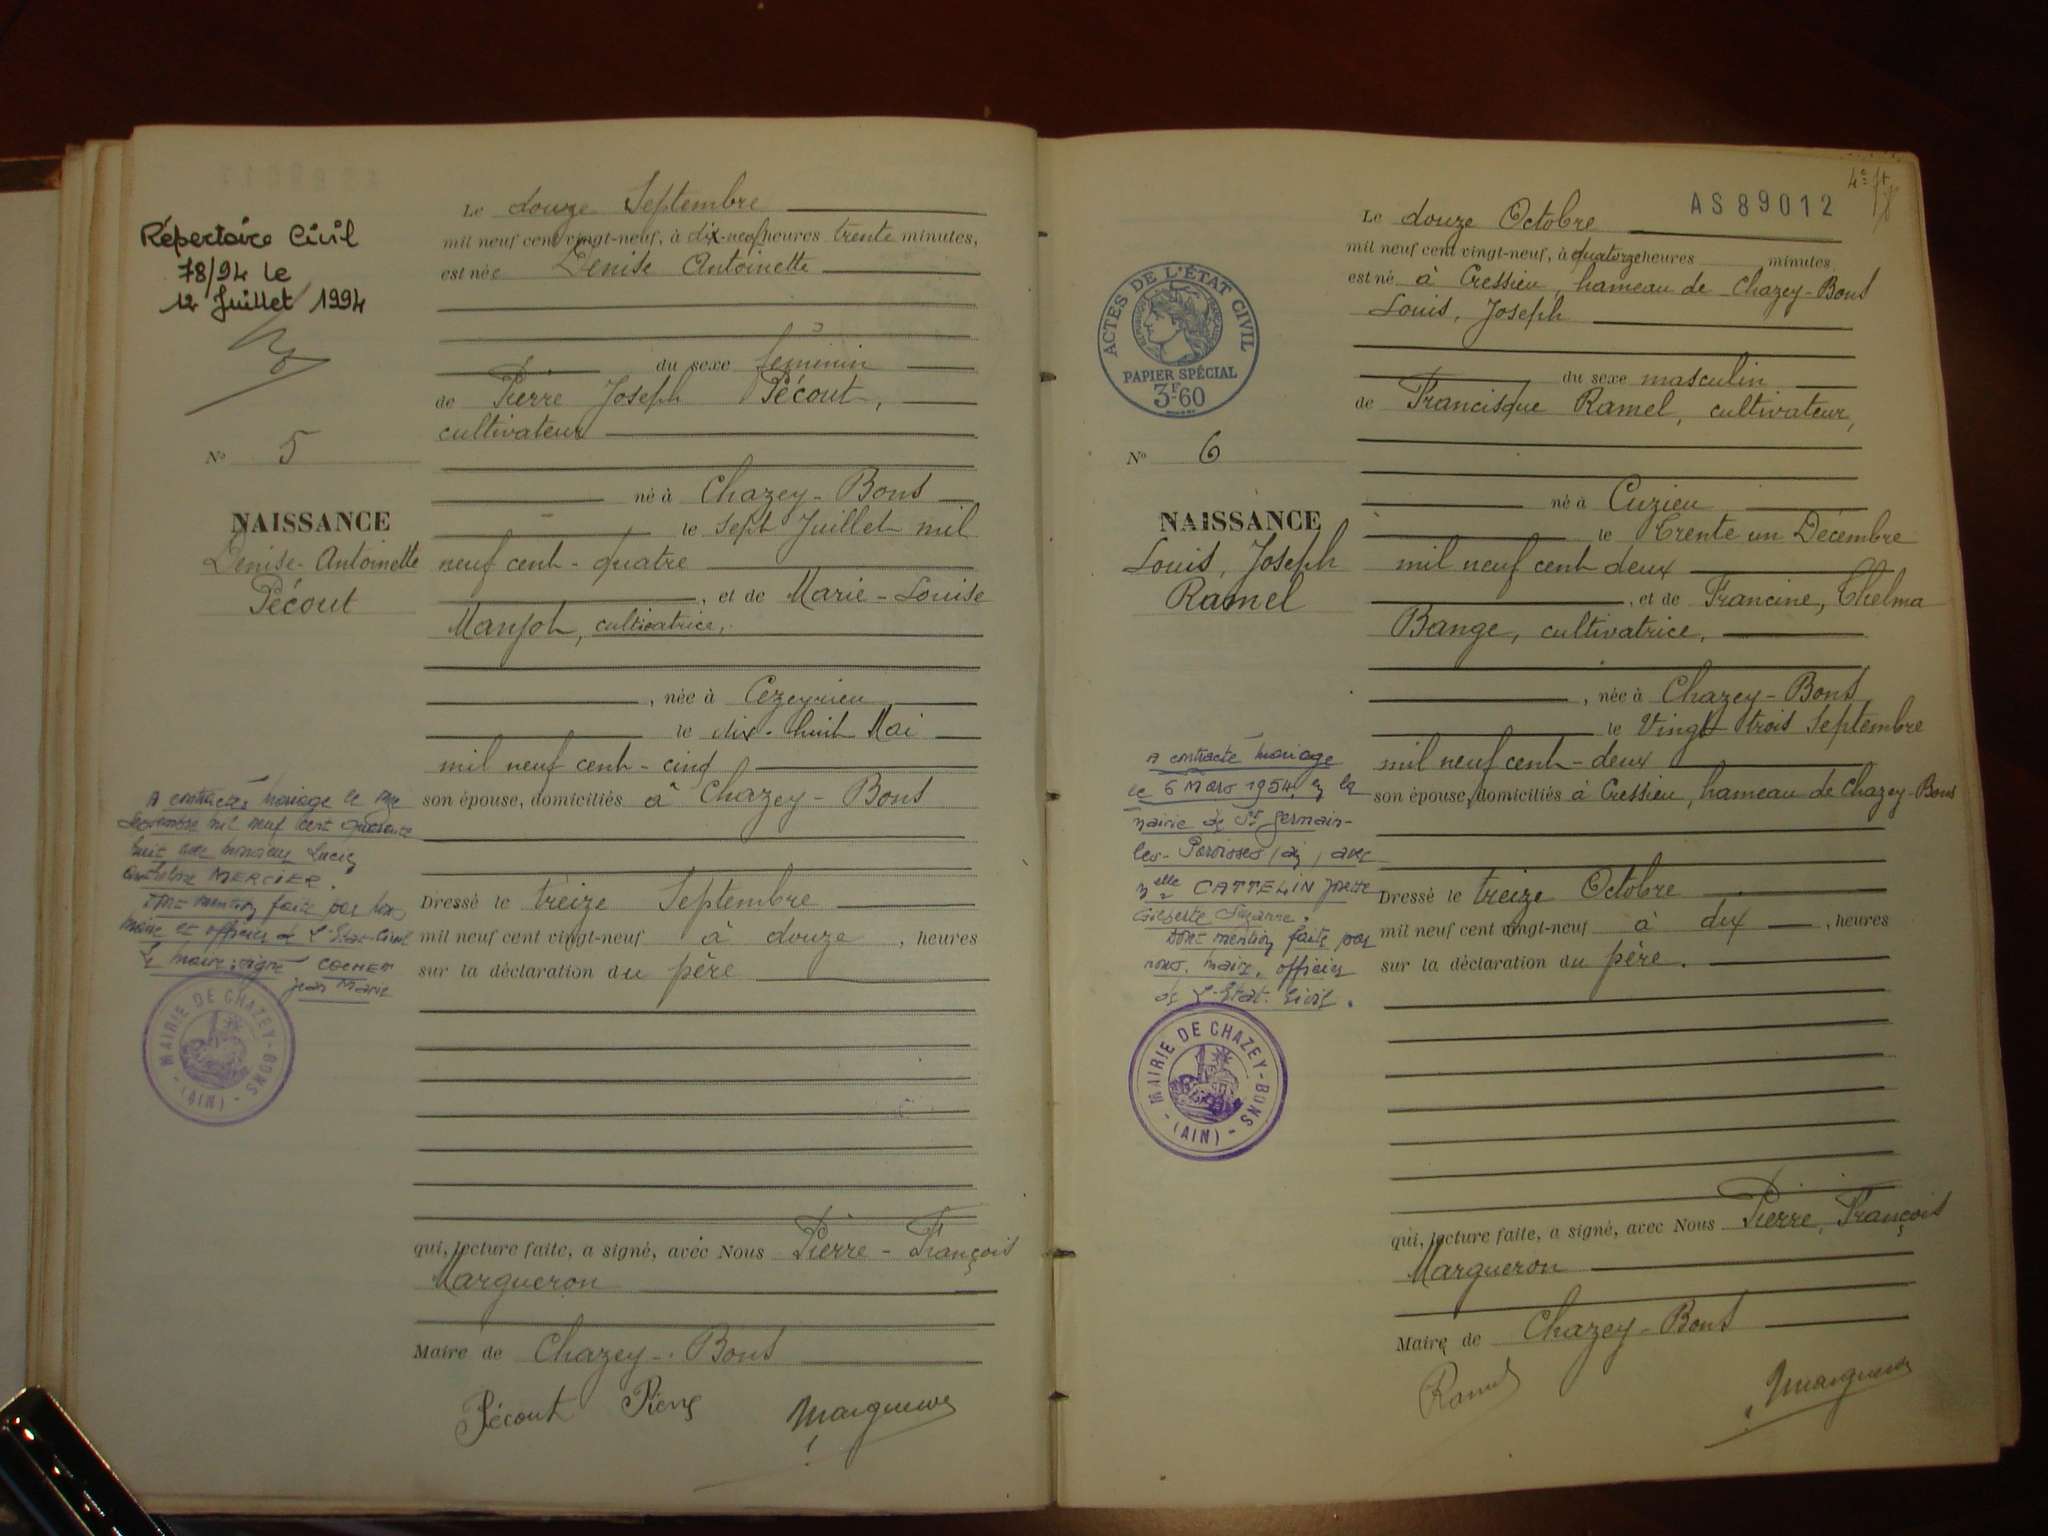 Répertoire Civil
78/94 le
12 Juillet 1994
N° 5
NAISSANCE
Denise-Antoinette
Pécout
A contracté mariage le
Novembre mil neuf cent quarante
huit avec monsieur Lucien
MERCIER.
Dont mention faite par nous
maire et officier de l'Etat-Civil
Le maire: signé COCHET
Jean Marie
MAIRIE DE CHAZEY-BONS
- (AIN) -
Le douze Septembre
mil neuf cent vingt-neuf, à dix-neuf heures trente minutes,
est née Denise Antoinette
du sexe féminin
de Pierre Joseph Pécout,
cultivateur
né à Chazey-Bons
le sept Juillet mil
neuf cent-quatre
, et de Marie-Louise
cultivatrice,
, née à Ceyzerieu
le dix-huit Mai
mil neuf cent-cinq
son épouse, domiciliés à Chazey-Bons
Dressé le treize Septembre
mil neuf cent vingt-neuf à douze, heures
sur la déclaration du père
qui, lecture faite, a signé, avec Nous Pierre-François
Margueron
Maire de Chazey-Bons
Pécout Pierre Margueron
AS89012
ACTES DE L'ÉTAT CIVIL
RÉPUBLIQUE FRANÇAISE
PAPIER SPÉCIAL
3F60
N° 6
NAISSANCE
Louis, Joseph
Ramel
A contracté mariage
le 6 Mars 1954 en la
mairie de St Germain-
les-Paroisses (Ain), avec
Melle CATTELIN Josette
Gilberte Suzanne.
Dont mention faite par
nous, maire, officier
de l'Etat-Civil.
MAIRIE DE CHAZEY-BONS
- (AIN) -
Le douze Octobre
mil neuf cent vingt-neuf, à quatorze heures minutes
est né à Cressieu, hameau de Chazey-Bons
Louis, Joseph
du sexe masculin
de Francisque Ramel, cultivateur,
né à Cuzieu
le Trente un Décembre
mil neuf cent deux
, et de Francine, Thelma
Bange, cultivatrice,
, née à Chazey-Bons
le Vingt trois Septembre
mil neuf cent-deux
son épouse, domiciliés à Cressieu, hameau de Chazey-Bons
Dressé le treize Octobre
mil neuf cent vingt-neuf à dix, heures
sur la déclaration du père.
qui, lecture faite, a signé, avec Nous Pierre, François
Margueron
Maire de Chazey-Bons
Ramel Margueron